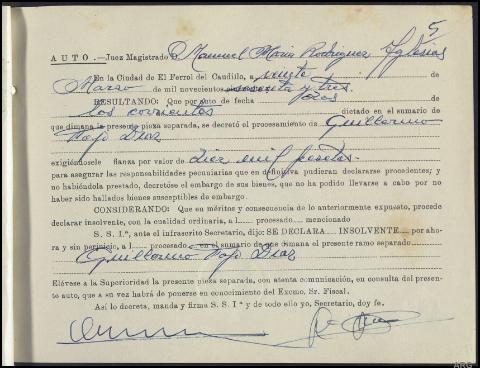 5
AUTO.—Juez Magistrado D. Manuel Maria Rodriguez Iglesias
En la Ciudad de El Ferrol del Caudillo, a veinte de
Marzo de mil novecientos y tres
RESULTANDO: Que por auto de fecha dos
los corrientes dictado en el sumario de
que dimana la presente pieza separada, se decretó el procesamiento de Guillermo
Diaz
exigiéndosele fianza por valor de diez mil pesetas.
para asegurar las responsabilidades pecuniarias que en definitiva pudieran declararse procedentes; y
no habiéndola prestado, decretóse el embargo de sus bienes, que no ha podido llevarse a cabo por no
haber sido hallados bienes susceptibles de embargo.
CONSIDERANDO: Que en méritos y consecuencia de lo anteriormente expuesto, procede
declarar insolvente, con la cualidad ordinaria, a l procesado mencionado
S. S. I.ª, ante el infrascrito Secretario, dijo: SE DECLARA INSOLVENTE por aho-
ra y sin perjuicio, a l procesado en el sumario de que dimana el presente ramo separado
Guillermo Diaz
Elévese a la Superioridad la presente pieza separada, con atenta comunicación, en consulta del presen-
te auto, que a su vez habrá de ponerse en conocimiento del Excmo. Sr. Fiscal.
Así lo decreta, manda y firma S. S. Iª y de todo ello yo, Secretario, doy fe.
ARG